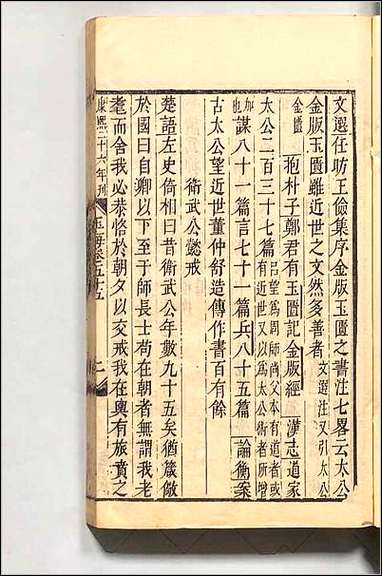 文選任昉王儉集序金版玉匱之書注七畧云太公
金版玉匱雖近世之文然多善者 文選注又引太公
金匱 抱朴子鄭君有玉匱記金版經 漢志道家
太公二百三十七篇 呂望爲周師尚父本有道者或
有近世又以爲太公術者所增
加也 謀八十一篇言七十一篇兵八十五篇 論衡案
古太公望近世董仲舒造傳作書百有餘
衛武公懿戒
楚語左史倚相曰昔衛武公年數九十五矣猶箴儆
於國曰自卿以下至于師長士苟在朝者無謂我老
耄而舍我必恭恪於朝夕以交戒我在輿有旅賁之
康熙二十六年刊 玉海卷五十五 二